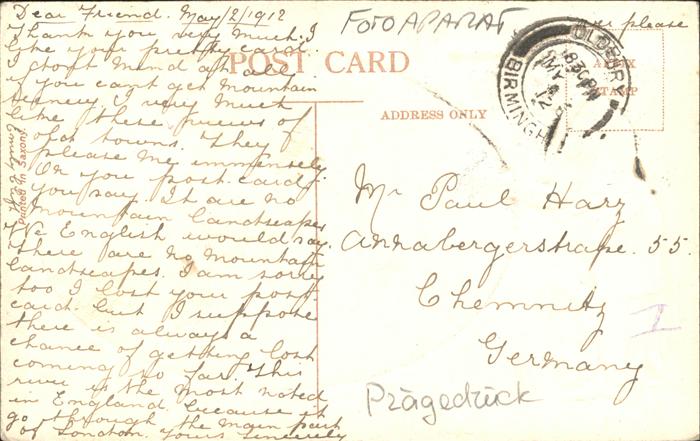 Dear Friend. May/2/1912
Thank you very much. I
like your pretty card.
I don't mind at all
if you can't get mountain
scenery. I very much
like these views of
old towns. They
please me immensely.
On you post card,
you say. It are no
mountain landscapes
We English would say.
there are no mountain
landscapes. I am sorry
too I lost your post
card. but I suppose
there is always a
chance of getting lost
coming so far. This
river is the most noted
in England. because it
go through the main part
of London. yours sincerely
Printed in Saxony.
FOTOAPARAT
over please
POST CARD
ADDRESS ONLY
AFFIX
STAMP
OLDBURY
BIRMINGHAM
8 30 PM
MY
12
Mr Paul Harz
Annabergerstrape. 55.
Chemnitz
Germany
I
Prägedrück